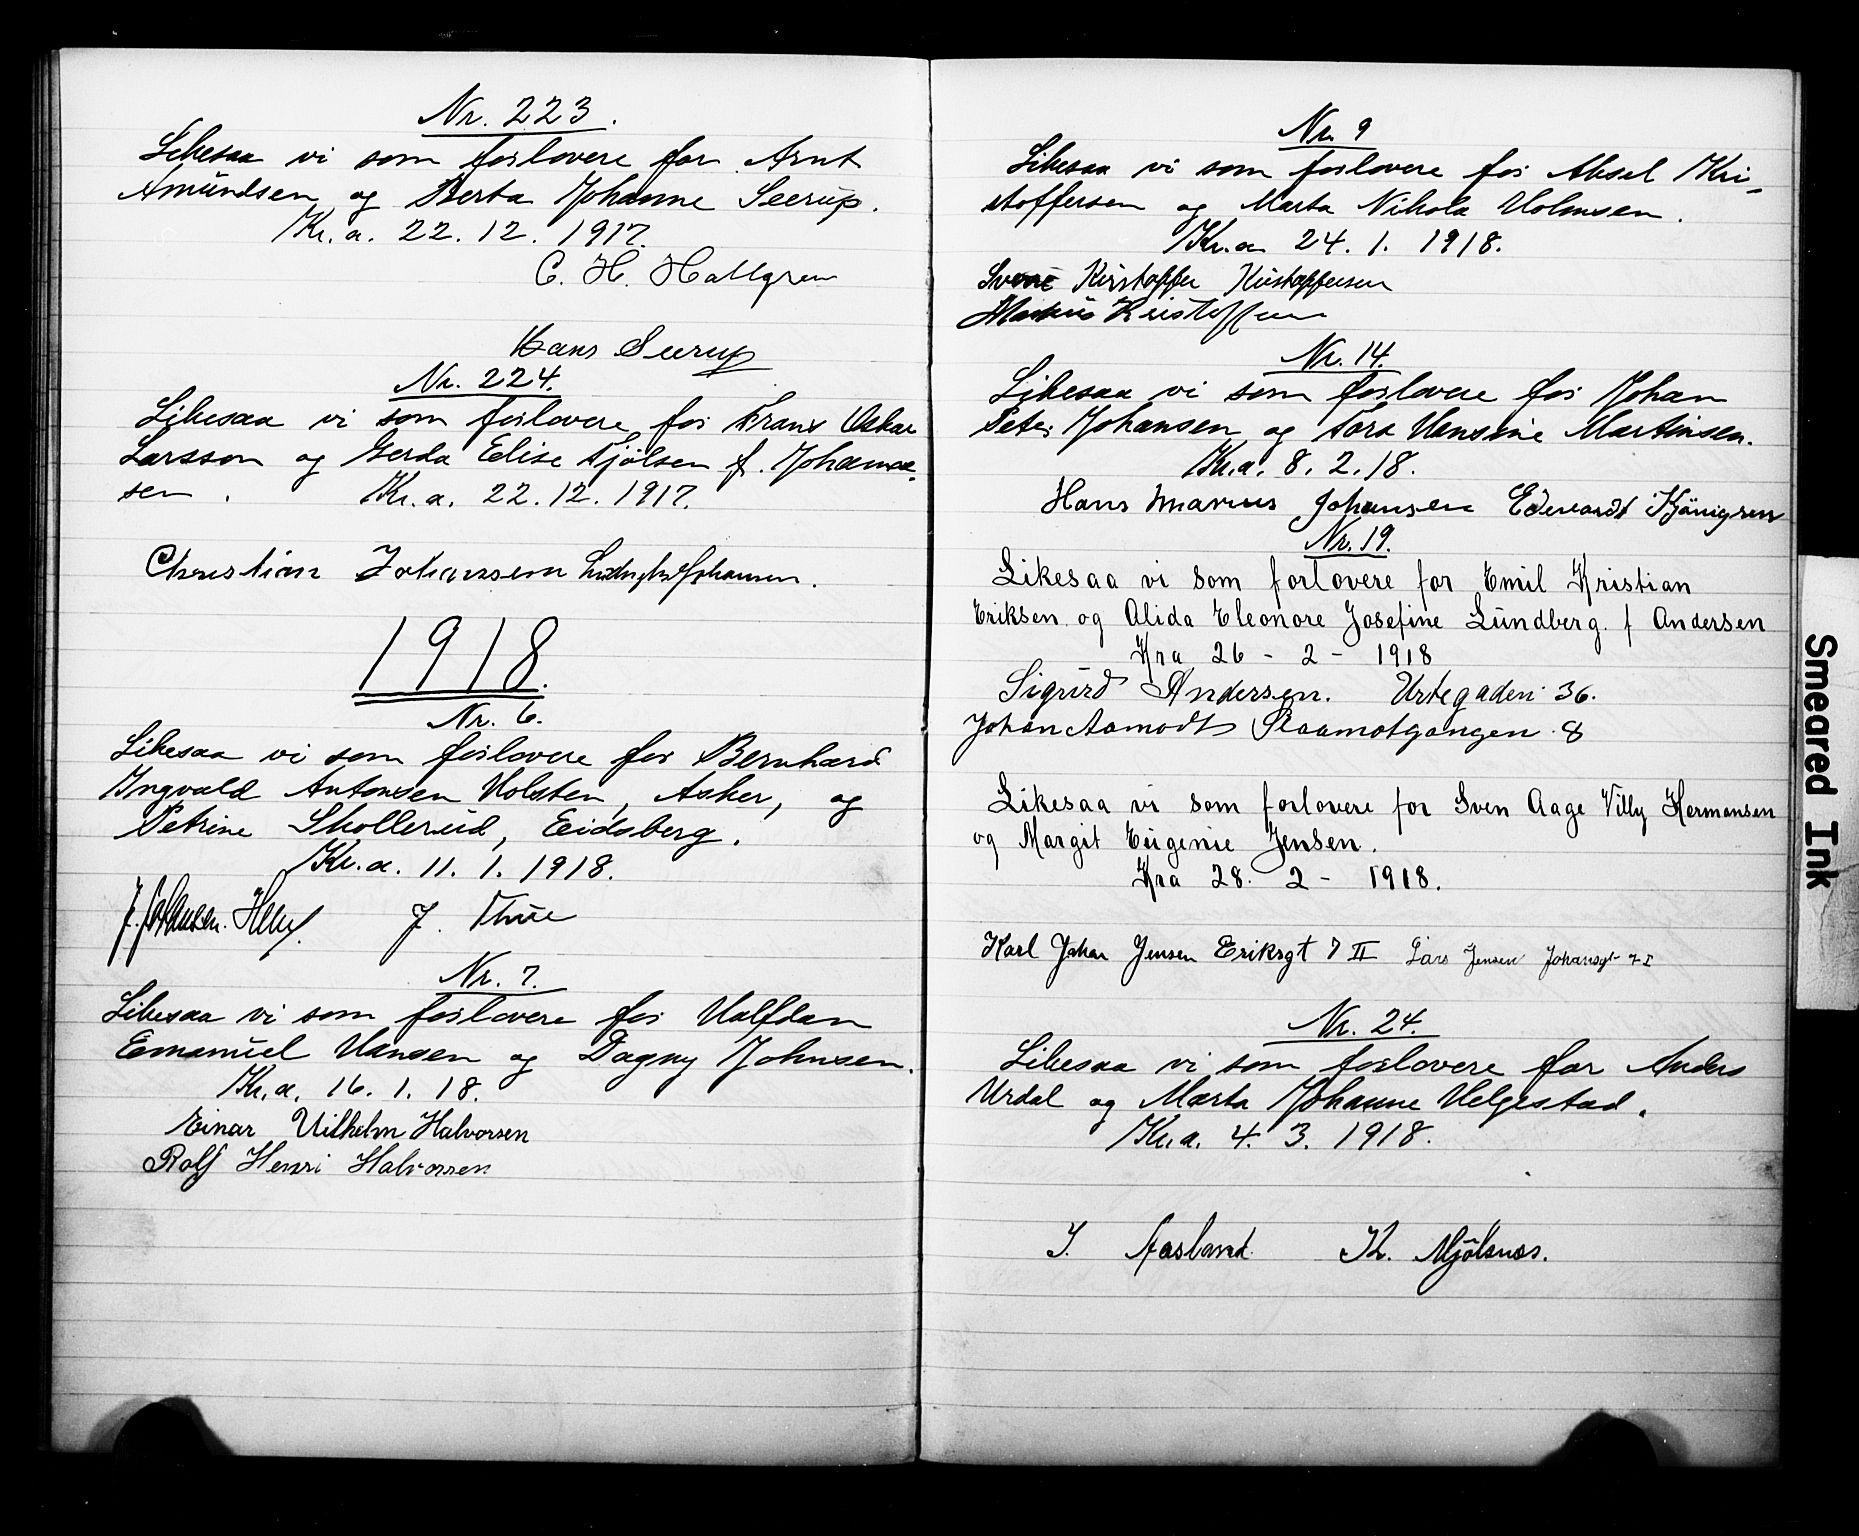 Nr. 223.
Likesaa vi som forlovere for Arnt
Amundsen og Berta Johanne Seerup.
Kr.a. 22.12. 1917.
C. H. Hallgren
Hans Seerup
Nr. 224.
Likesaa vi som forlovere for Franz Oskar
Larsson og Gerda Elise Fjölsen f. Johann-
sen. Kr.a. 22.12.1917.
Christian Johanssen Johansen.
1918.
Nr. 6.
Likesaa vi som forlovere for Bernhard
Ingvald Antonsen Holsten, Asker, og
Petrine Skollerud, Eidsberg.
Kr.a. 11.1.1918.
J. Johansen. J. Thue
Nr. 7.
Likesaa vi som forlovere for Halfdan
Emanuel Hansen og Dagny Johnsen.
Kr.a. 16.1.18.
Einar Vilhelm Halvorsen
Rolf Henri Halvorsen
Nr. 9
Likesaa vi som forlovere for Aksel Kri-
stoffersen og Marta Nikola Holmsen.
Kr.a 24.1.1918.
Kristoffer Kristoffersen
Markus Kristoffersen
Nr. 14.
Likesaa vi som forlovere for Johan
Peter Johansen og Tora Hansine Martinsen.
Kr.a. 8.2.18.
Hans Marius Johansen Edevardt
Nr. 19.
Likesaa vi som forlovere for Emil Kristian
Eriksen og Alida Eleonore Josefine Lundberg. f Andersen
Kra 26 - 2 - 1918
Sigurd Andersen. Urtegaden 36.
Johan Aamodt Plaamotgangen 8
Likesaa vi som forlovere for Sven Aage Villy Hermansen
og Margit Eugenie Jensen.
Kra 28. 2 - 1918.
Karl Johan Jensen Eriksgt 7 II Lars Jensen Johansgt 7 I
Nr. 24.
Likesaa vi som forlovere for Anders
Urdal og Marta Johanne Helgestad.
Kr.a. 4.3.1918.
I. Aasland. K. Mjölsnes.
Smeared Ink